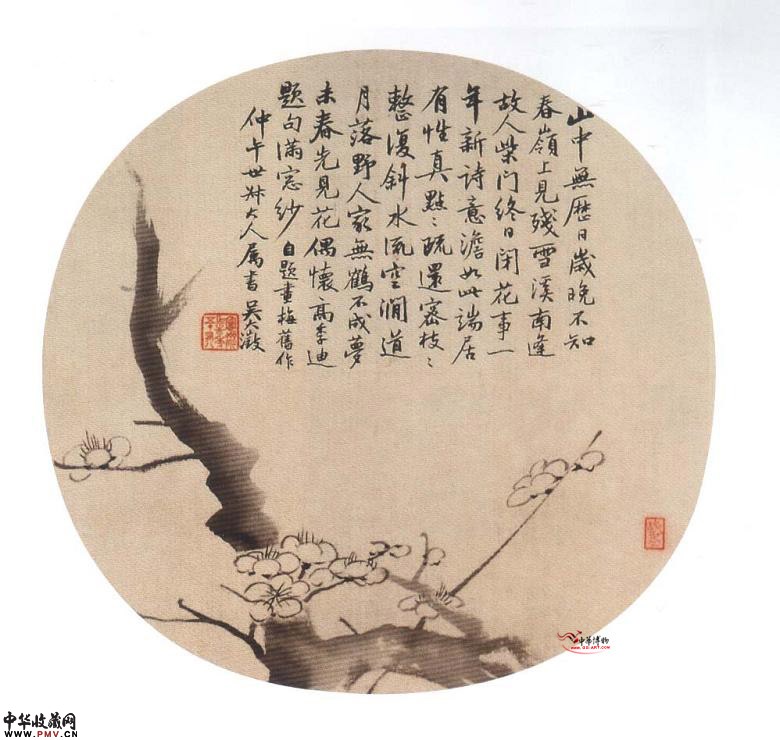 山中無歷日歲晚不知
春嶺上見殘雪溪南逢
故人柴門終日閉花事一
年新詩意澹如此端居
有性真點〻疏還密枝〻
整復斜水流空澗道
月落野人家無鶴不成夢
未春先見花偶懷高季迪
題句滿窓紗 自題畫梅舊作
仲午世叔大人屬書 吳大澂
中华博物
WWW.GG-ART.COM
中华收藏网
WWW.PMV.CN